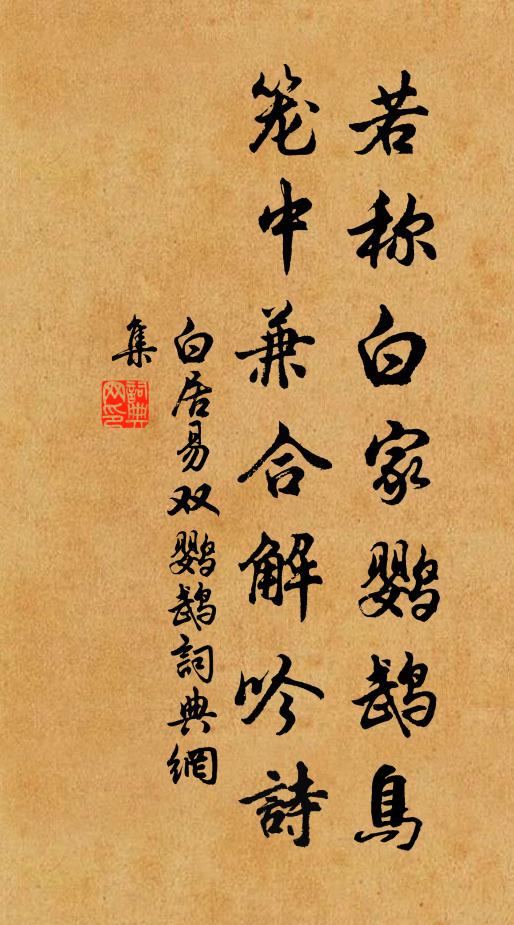 若称白家鹦鹉鸟
笼中兼合解吟詩
白居易双鹦鹉詞典網
集
詞典
网印